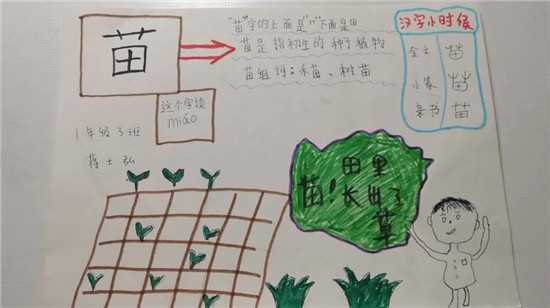 苗
"苗"字的上面是"艹"下面是田
苗是指初生的种子植物
苗组词：禾苗、树苗
汉字小时候
金文 苗
小篆 苗
隶书 苗
这个字读
miáo
1年级3班
蒋士弘
苗！田里
长出了
草